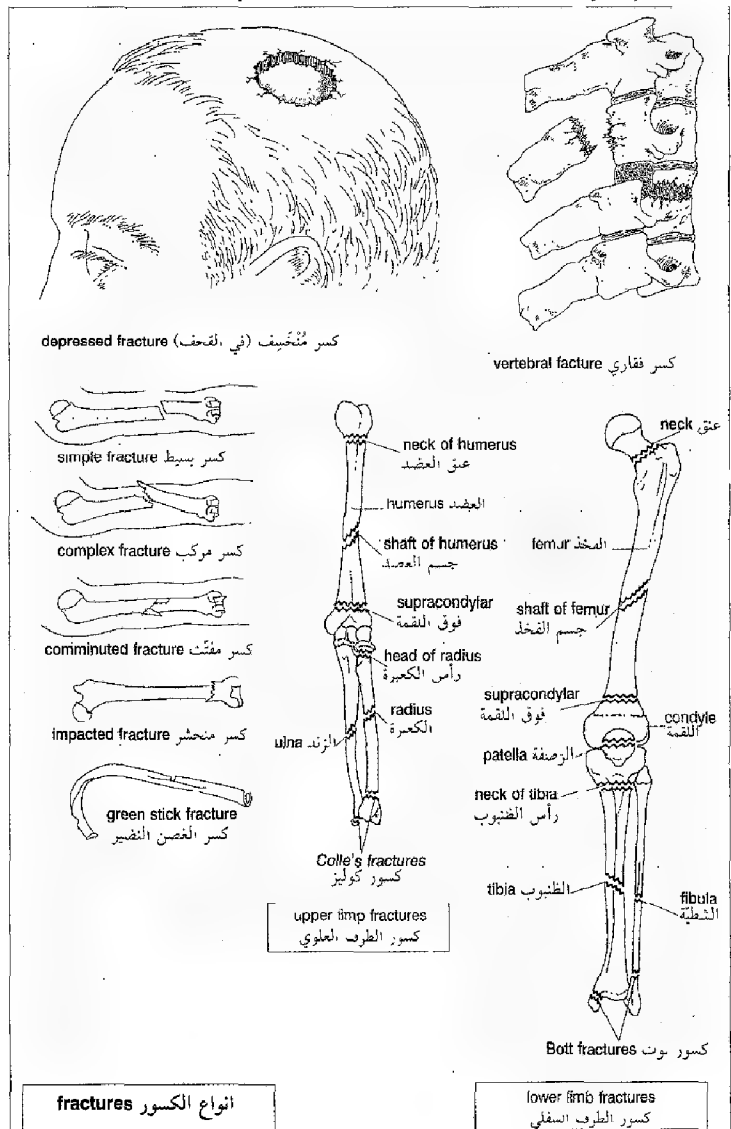 depressed fracture كسر مُنْخَسِف (في القحف)
vertebral facture كسر فقاري
simple fracture كسر بسيط
complex fracture كسر مركب
comminuted fracture كسر مفتّت
impacted fracture كسر منحشر
green stick fracture
كسر الغصن النضير
neck of humerus
عنق العضد
humerus العضد
shaft of humerus
جسم العضد
supracondylar
فوق اللقمة
head of radius
رأس الكعبرة
radius
الكعبرة
ulna الزند
Colle's fractures
كسور كوليز
upper limp fractures
كسور الطرف العلوي
neck عنق
femur الفخذ
shaft of femur
جسم الفخذ
supracondylar
فوق اللقمة
condyle
اللقمة
patella الرضفة
neck of tibia
رأس الظنبوب
tibia الظنبوب
fibula
الشظيّة
Bott fractures كسور بوت
lower limb fractures
كسور الطرف السفلي
fractures انواع الكسور